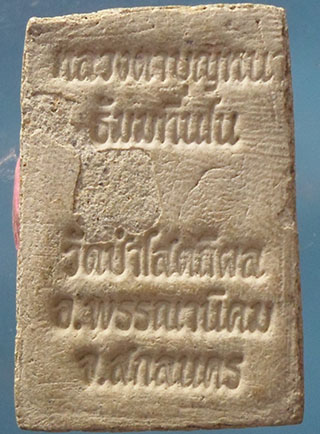 หลวงตาบุญหนา
ธัมมทินโน
วัดป่าโสตถิผล
อ.พรรณานิคม
จ.สกลนคร